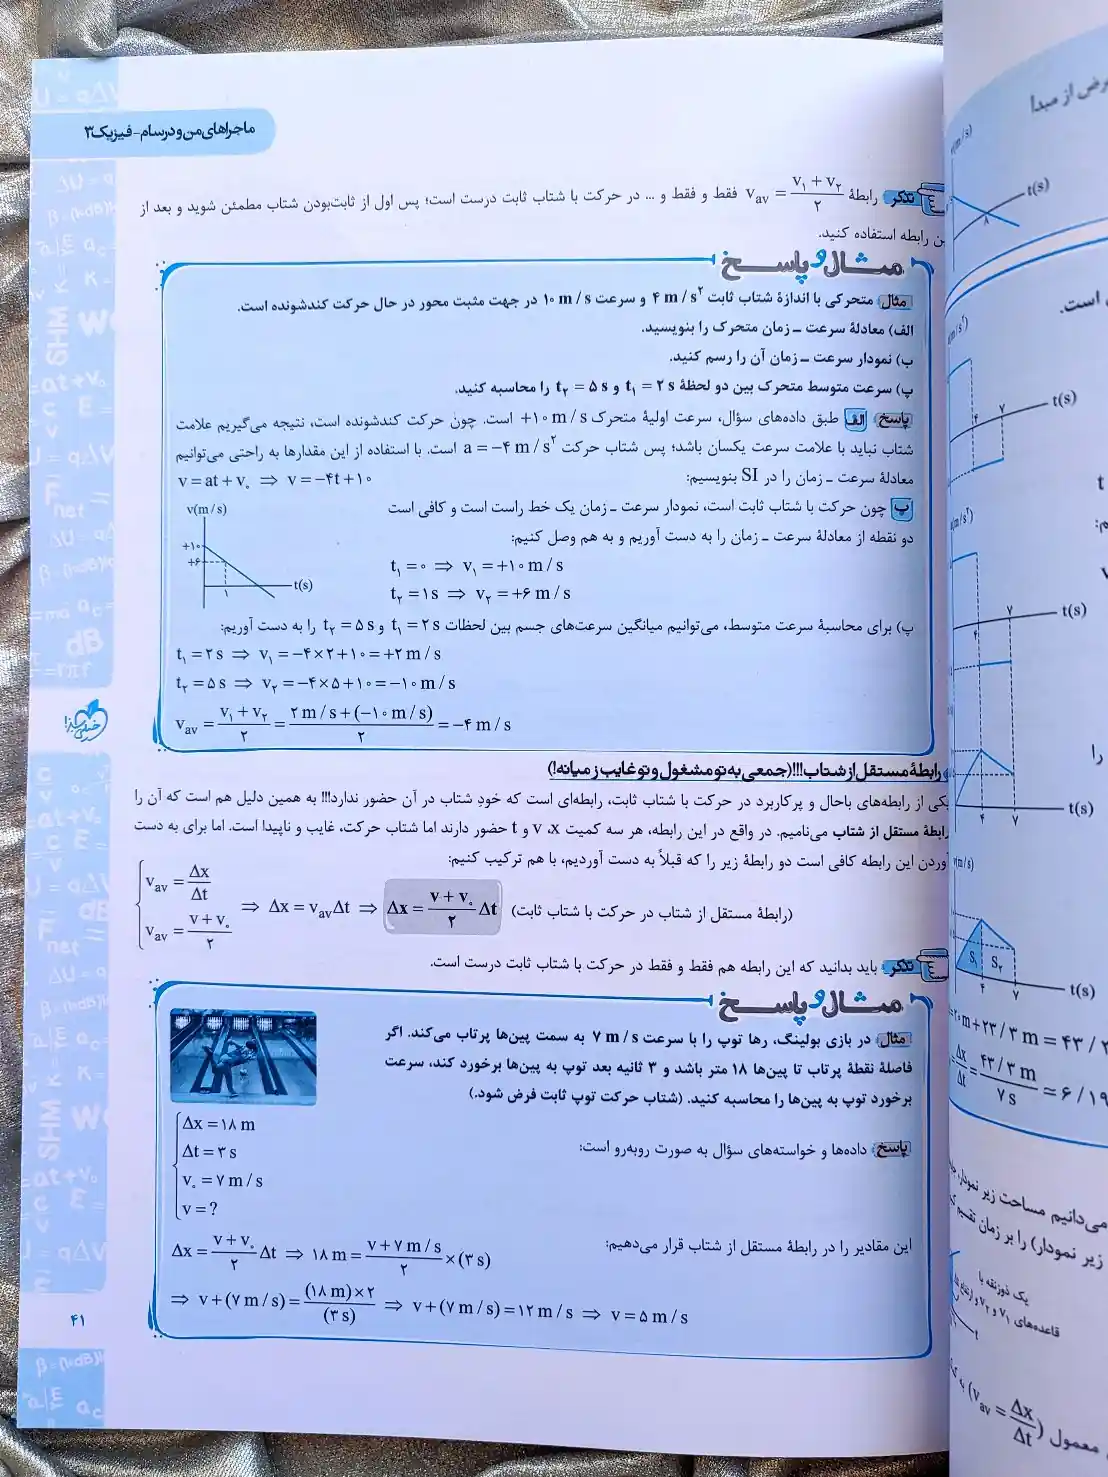 ماجراهای من و درسام - فیزیک ۳
تذکر رابطهٔ v_av = (v₁ + v₂)/۲ فقط و فقط و ... در حرکت با شتاب ثابت درست است؛ پس اول از ثابت‌بودن شتاب مطمئن شوید و بعد از
رابطه استفاده کنید.
مثال و پاسخ
مثال متحرکی با اندازهٔ شتاب ثابت ۴ m/s² و سرعت ۱۰ m/s در جهت مثبت محور در حال حرکت کندشونده است.
الف) معادلهٔ سرعت ـ زمان متحرک را بنویسید.
ب) نمودار سرعت ـ زمان آن را رسم کنید.
پ) سرعت متوسط متحرک بین دو لحظهٔ t₁ = ۲ s و t₂ = ۵ s را محاسبه کنید.
پاسخ الف طبق داده‌های سؤال، سرعت اولیهٔ متحرک +۱۰ m/s است. چون حرکت کندشونده است، نتیجه می‌گیریم علامت
شتاب نباید با علامت سرعت یکسان باشد؛ پس شتاب حرکت a = −۴ m/s² است. با استفاده از این مقدارها به راحتی می‌توانیم
معادلهٔ سرعت ـ زمان را در SI بنویسیم: v = at + v₀ ⇒ v = −۴t + ۱۰
ب چون حرکت با شتاب ثابت است، نمودار سرعت ـ زمان یک خط راست است و کافی است
دو نقطه از معادلهٔ سرعت ـ زمان را به دست آوریم و به هم وصل کنیم:
t₁ = ۰ ⇒ v₁ = +۱۰ m/s
t₂ = ۱s ⇒ v₂ = +۶ m/s
v(m/s)
+۱۰
+۶
۱
t(s)
پ) برای محاسبهٔ سرعت متوسط، می‌توانیم میانگین سرعت‌های جسم بین لحظات t₁ = ۲ s و t₂ = ۵ s را به دست آوریم:
t₁ = ۲ s ⇒ v₁ = −۴×۲+۱۰ = +۲ m/s
t₂ = ۵ s ⇒ v₂ = −۴×۵+۱۰ = −۱۰ m/s
v_av = (v₁ + v₂)/۲ = (۲ m/s + (−۱۰ m/s))/۲ = −۴ m/s
رابطهٔ مستقل از شتاب!!! (جمعی به تو مشغول و تو غایب ز میانه!)
یکی از رابطه‌های باحال و پرکاربرد در حرکت با شتاب ثابت، رابطه‌ای است که خودِ شتاب در آن حضور ندارد!!! به همین دلیل هم است که آن را
رابطهٔ مستقل از شتاب می‌نامیم. در واقع در این رابطه، هر سه کمیت x، v و t حضور دارند اما شتاب حرکت، غایب و ناپیدا است. اما برای به دست
آوردن این رابطه کافی است دو رابطهٔ زیر را که قبلاً به دست آوردیم، با هم ترکیب کنیم:
v_av = Δx/Δt
v_av = (v + v₀)/۲
⇒ Δx = v_av Δt ⇒ Δx = (v + v₀)/۲ Δt (رابطهٔ مستقل از شتاب در حرکت با شتاب ثابت)
تذکر باید بدانید که این رابطه هم فقط و فقط در حرکت با شتاب ثابت درست است.
مثال و پاسخ
مثال در بازی بولینگ، رها توپ را با سرعت ۷ m/s به سمت پین‌ها پرتاب می‌کند. اگر
فاصلهٔ نقطهٔ پرتاب تا پین‌ها ۱۸ متر باشد و ۳ ثانیه بعد توپ به پین‌ها برخورد کند، سرعت
برخورد توپ به پین‌ها را محاسبه کنید. (شتاب حرکت توپ ثابت فرض شود.)
پاسخ داده‌ها و خواسته‌های سؤال به صورت روبه‌رو است:
Δx = ۱۸ m
Δt = ۳ s
v₀ = ۷ m/s
v = ?
این مقادیر را در رابطهٔ مستقل از شتاب قرار می‌دهیم:
Δx = (v + v₀)/۲ Δt ⇒ ۱۸ m = (v + ۷ m/s)/۲ × (۳ s)
⇒ v + (۷ m/s) = ((۱۸ m)×۲)/(۳ s) ⇒ v + (۷ m/s) = ۱۲ m/s ⇒ v = ۵ m/s
خیلی سبز
۴۱
t(s)
t(s)
t(s)
t(s)
v(m/s)
S₁ S₂
۴ ۷
t(s)
می‌دانیم مساحت زیر نمودار
زیر نمودار) را بر زمان تقسیم
یک ذوزنقه با
معمول (v_av = Δx/Δt)